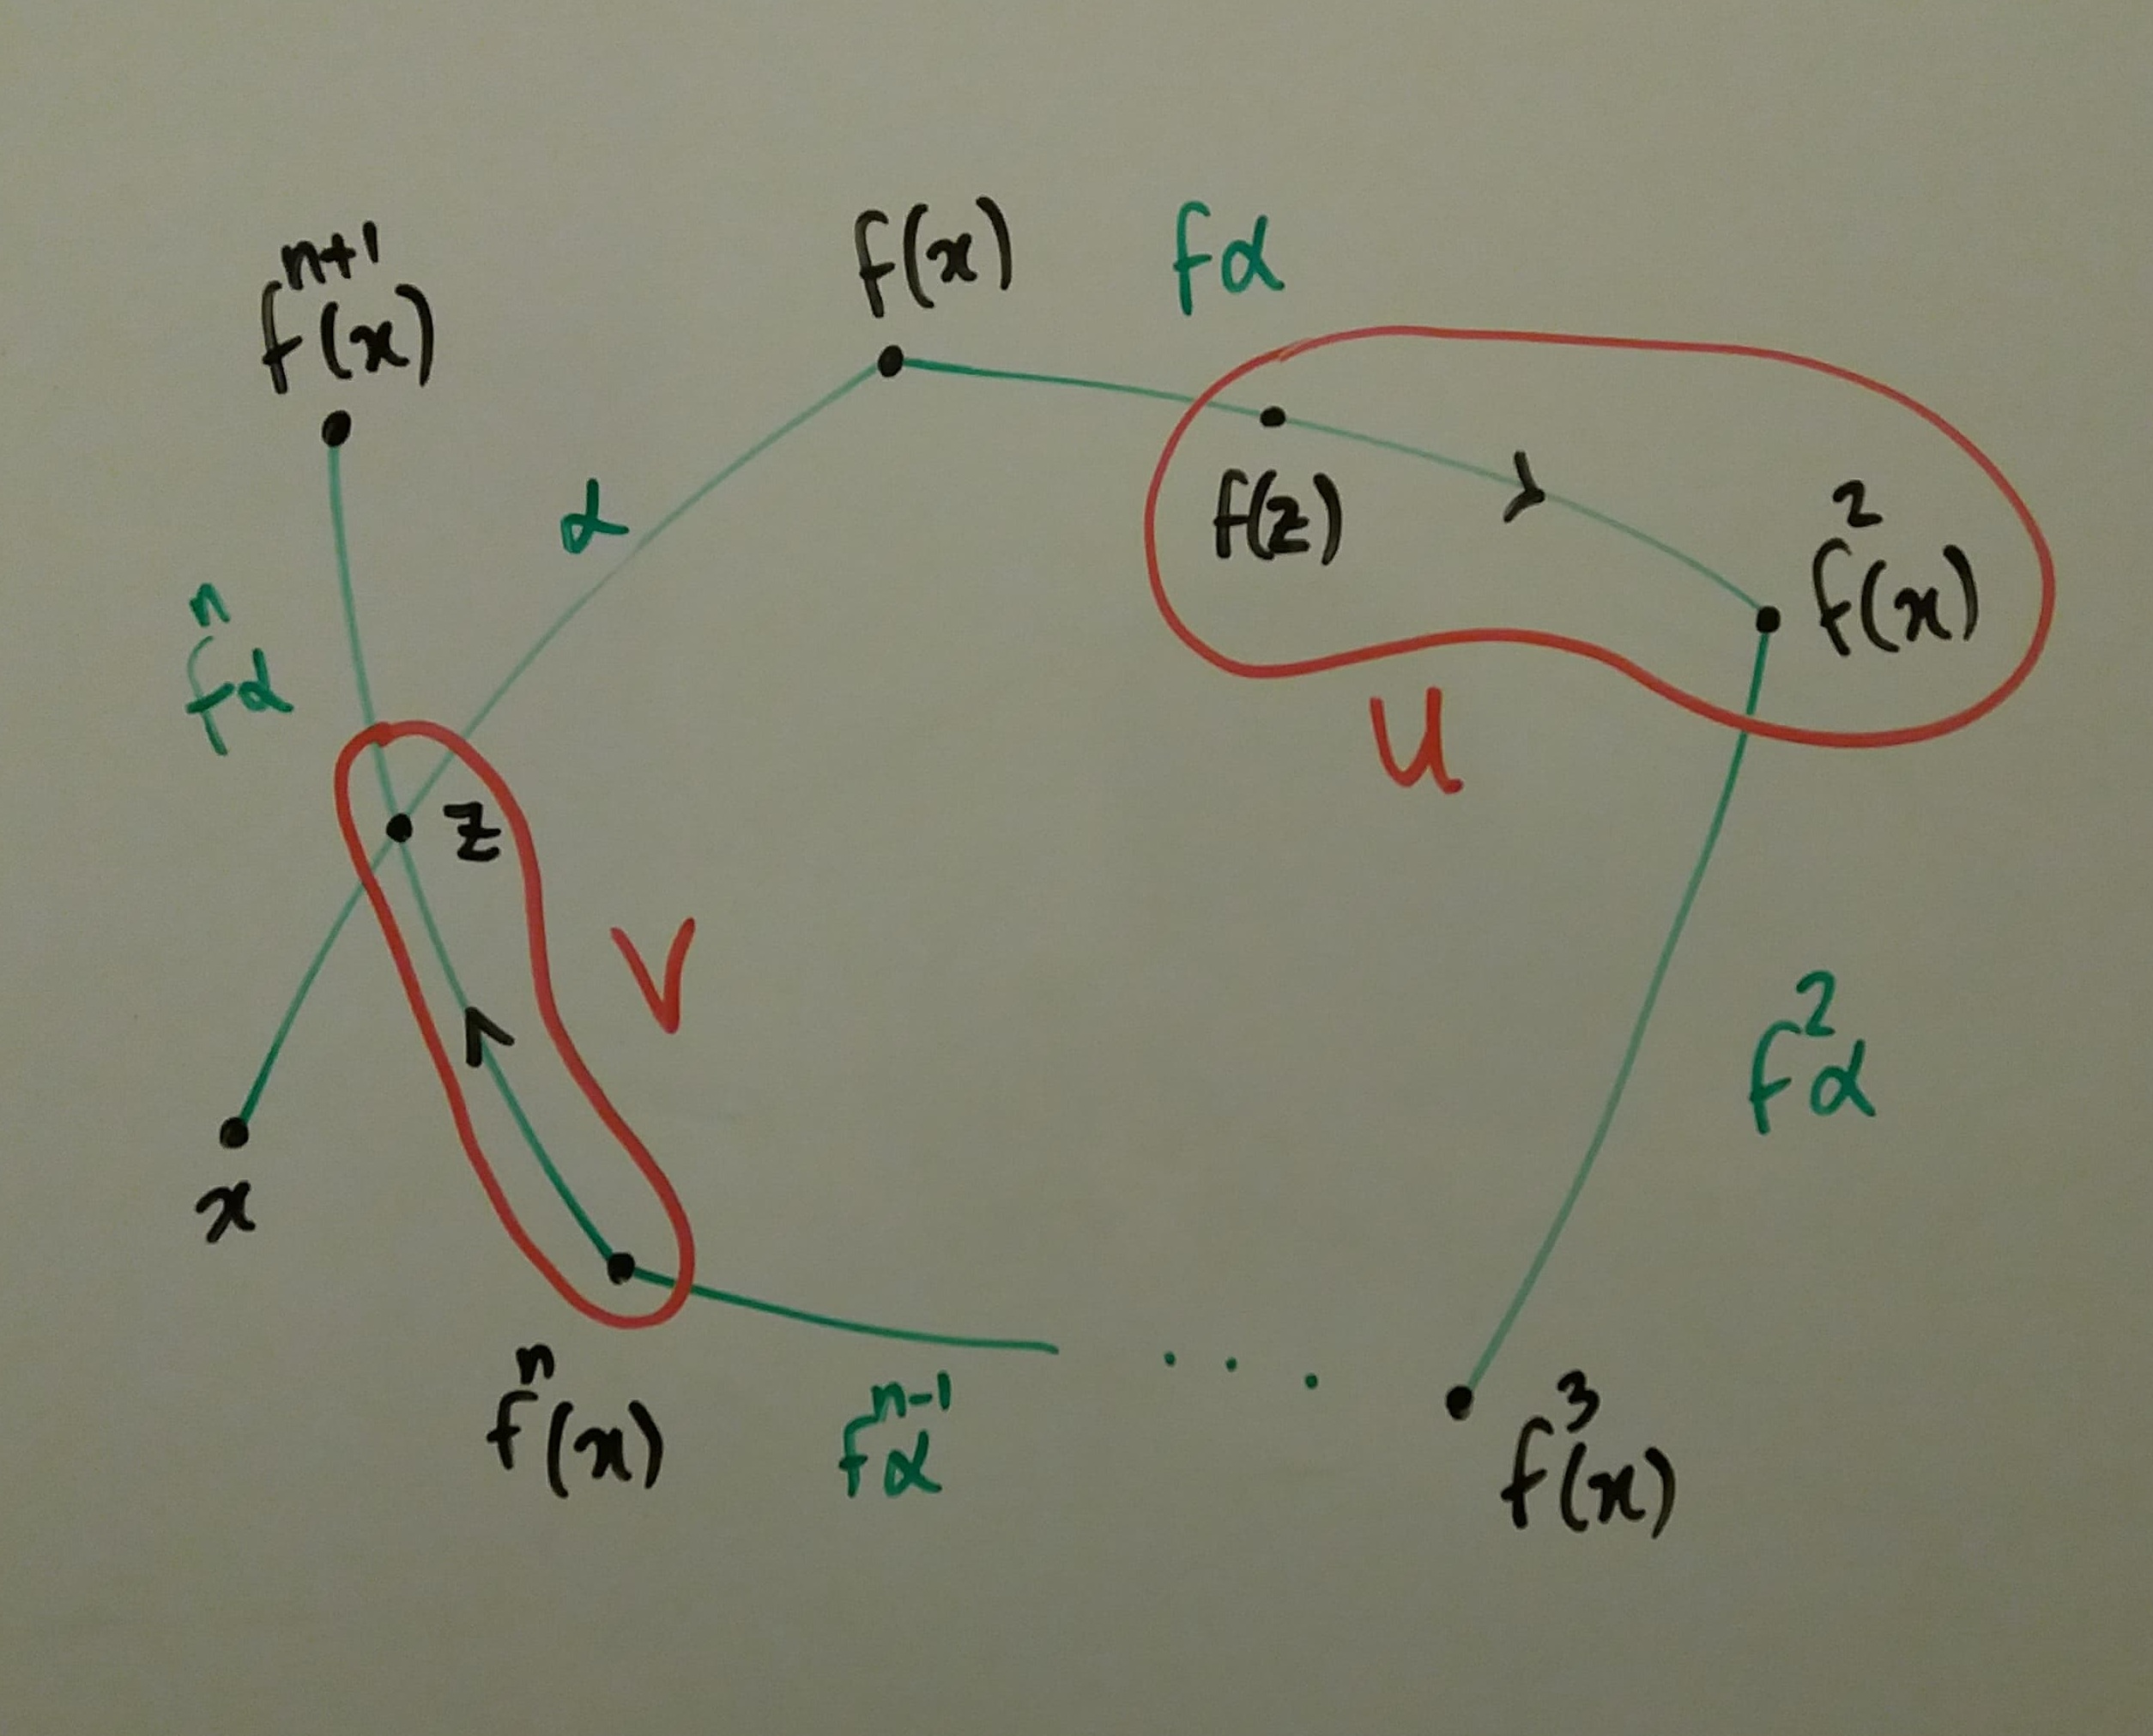 fⁿ⁺¹(x)
f(x)
fα
α
f(z)
f²(x)
fⁿα
U
z
V
f²α
x
fⁿ(x)
fⁿ⁻¹α
. . .
f³(x)